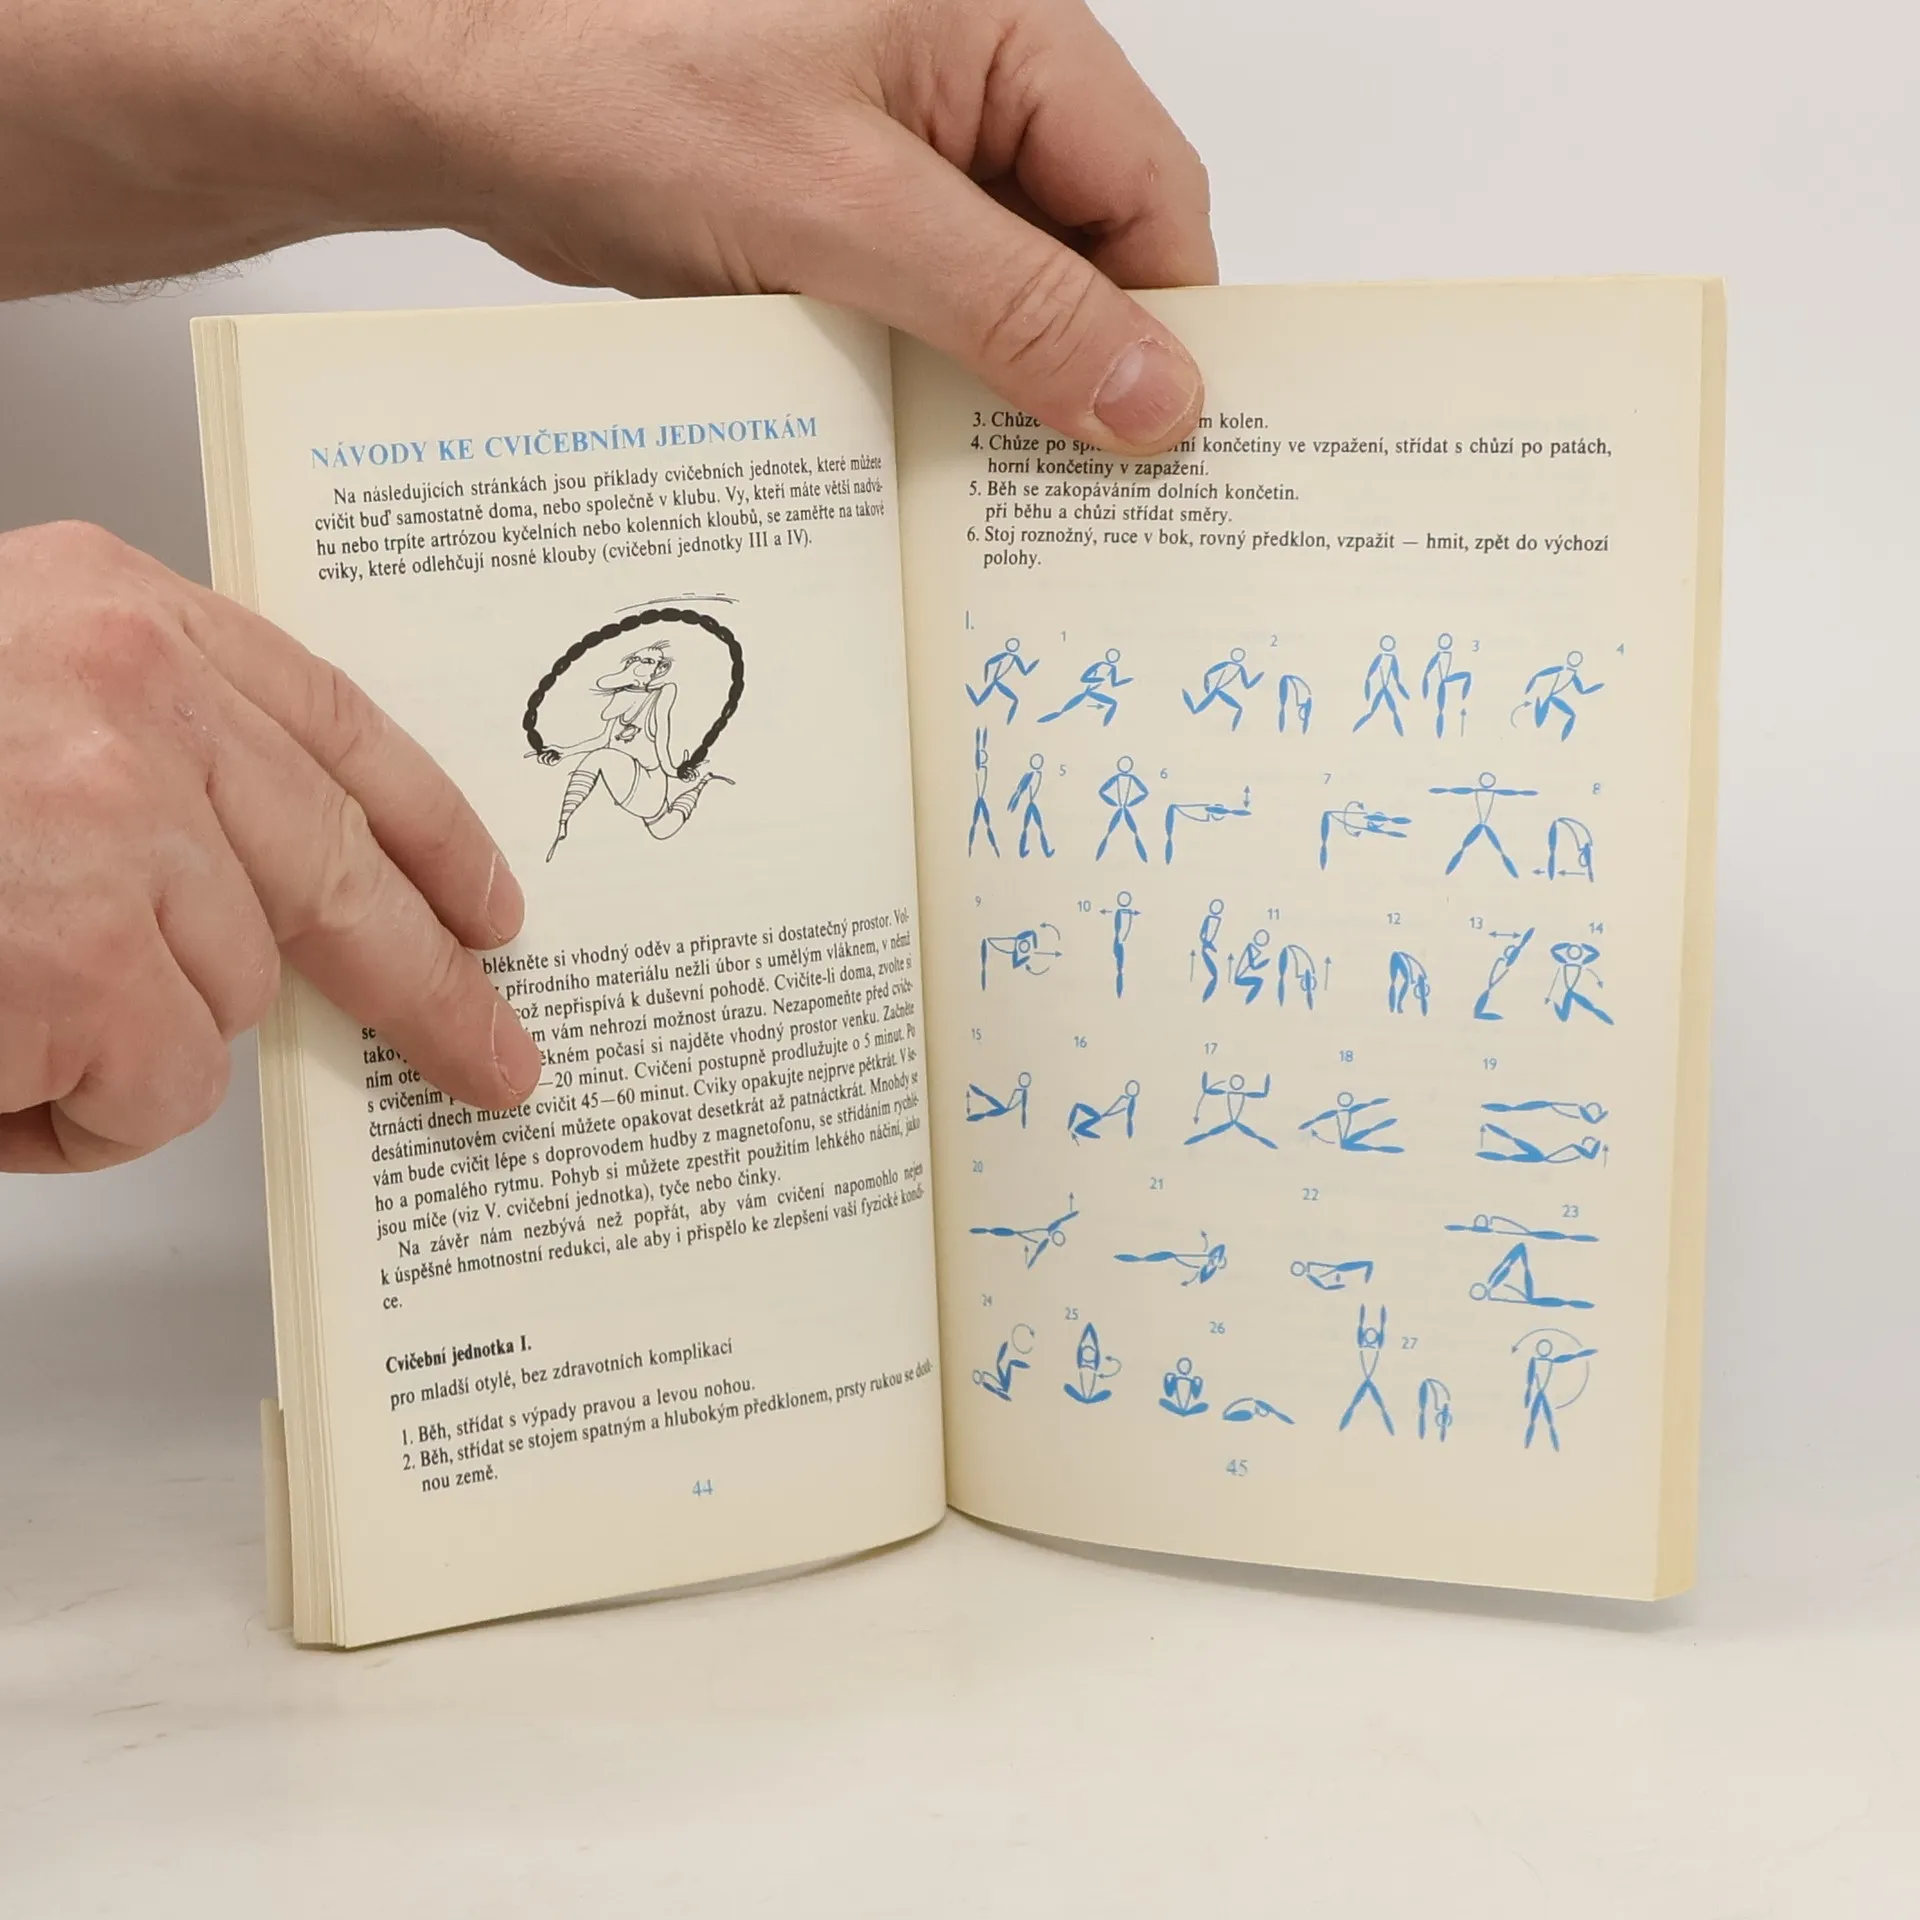 NÁVODY KE CVIČEBNÍM JEDNOTKÁM
Na následujících stránkách jsou příklady cvičebních jednotek, které můžete
cvičit buď samostatně doma, nebo společně v klubu. Vy, kteří máte větší nadvá-
hu nebo trpíte artrózou kyčelních nebo kolenních kloubů, se zaměřte na takové
cviky, které odlehčují nosné klouby (cvičební jednotky III a IV).
blékněte si vhodný oděv a připravte si dostatečný prostor. Vol-
přírodního materiálu nežli úbor s umělým vláknem, v němž
se což nepřispívá k duševní pohodě. Cvičíte-li doma, zvolte si
takov m vám nehrozí možnost úrazu. Nezapomeňte před cviče-
ním ote ěkném počasí si najděte vhodný prostor venku. Začněte
s cvičením —20 minut. Cvičení postupně prodlužujte o 5 minut. Po
čtrnácti dnech můžete cvičit 45—60 minut. Cviky opakujte nejprve pětkrát. V še-
desátiminutovém cvičení můžete opakovat desetkrát až patnáctkrát. Mnohdy se
vám bude cvičit lépe s doprovodem hudby z magnetofonu, se střídáním rychlé-
ho a pomalého rytmu. Pohyb si můžete zpestřit použitím lehkého náčiní, jako
jsou míče (viz V. cvičební jednotka), tyče nebo činky.
Na závěr nám nezbývá než popřát, aby vám cvičení napomohlo nejen
k úspěšné hmotnostní redukci, ale aby i přispělo ke zlepšení vaší fyzické kondi-
ce.
Cvičební jednotka I.
pro mladší otylé, bez zdravotních komplikací
1. Běh, střídat s výpady pravou a levou nohou.
2. Běh, střídat se stojem spatným a hlubokým předklonem, prsty rukou se dotk-
nou země.
44
3. Chůze m kolen.
4. Chůze po končetiny ve vzpažení, střídat s chůzí po patách,
horní končetiny v zapažení.
5. Běh se zakopáváním dolních končetin.
při běhu a chůzi střídat směry.
6. Stoj roznožný, ruce v bok, rovný předklon, vzpažit — hmit, zpět do výchozí
polohy.
I.
1 2 3 4
5 6 7 8
9 10 11 12 13 14
15 16 17 18 19
20 21 22 23
24 25 26 27
45